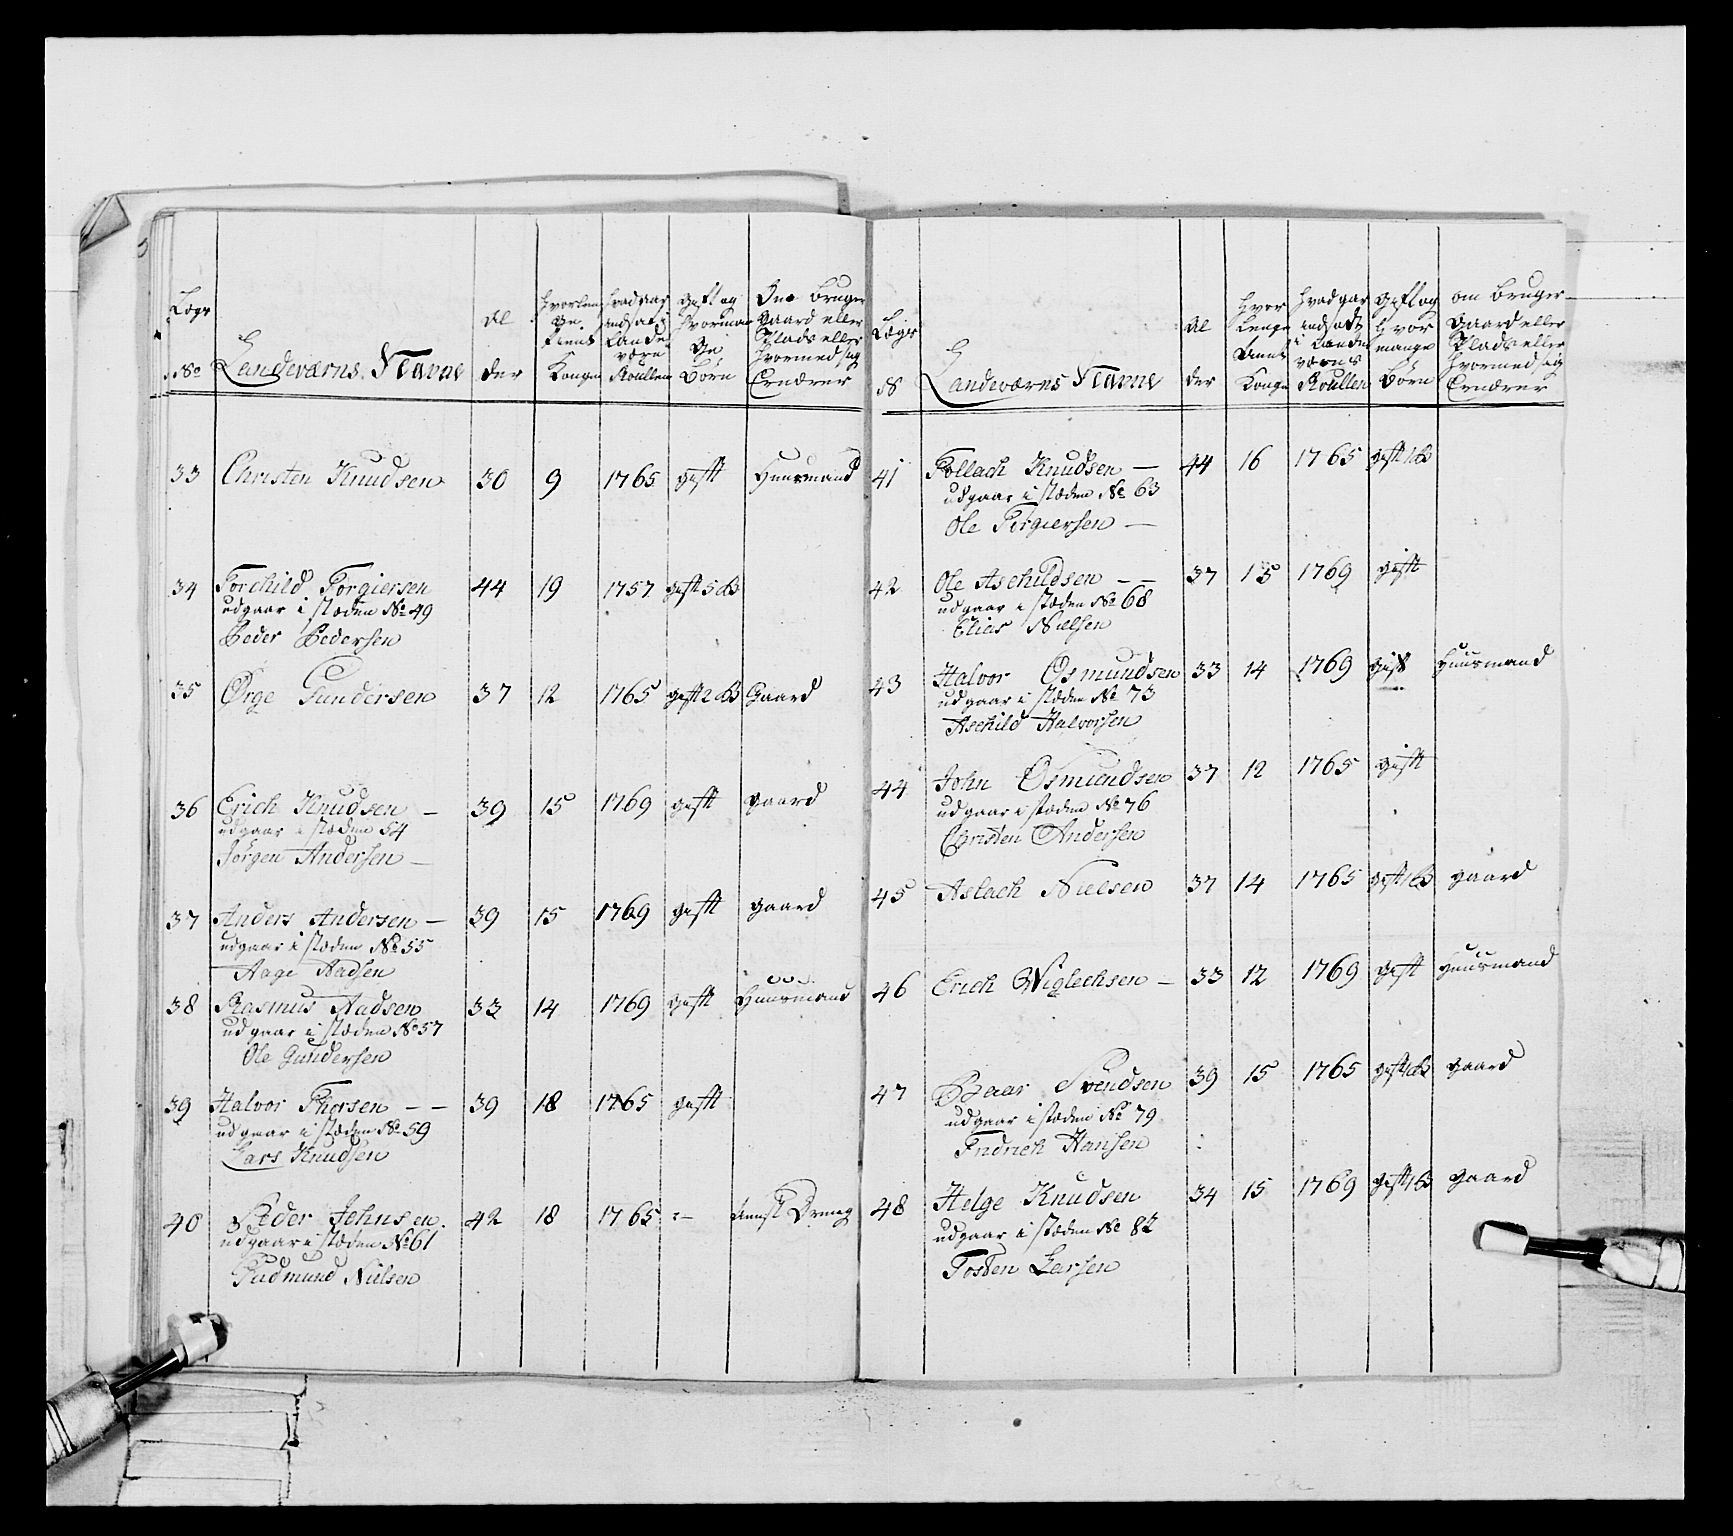 Lægs
No
Landeværns Navne
Al
der
hvorlenge
tient
Kongen
hvad aar
indsat i
Lande
værn
Roullen
gift og
hvorman
ge
Børn
Om bruger
gaard eller
Plads eller
hvormed sig
Ernærer
33 Christen Knudsen 30 9 1765 gift Huusmand
34 Torchild Torgiersen 44 19 1757 gift 5 B
udgaar i stæden No 49
Peder Pedersen
35 Ørge Gundersen 37 12 1765 gift 2 B Gaard
36 Erich Knudsen — 39 15 1769 gift gaard
udgaar i stæden 54
Jørgen Andersen —
37 Anders Andersen — 39 15 1769 gift gaard
udgaar i stæden No 55
Aage Aadsen
38 Rasmus Aadsen 33 14 1769 gift Huusmand
udgaar i stæden No 57
Ole Gundersen
39 Halvor Thorsen — — 39 18 1765 gift
udgaar i stæden No 59
Lars Knudsen
40 Peder Johnsen 42 18 1765 :— tienst Dreng
udgaar i stæden No 61
Gudmund Nielsen
Lægs
N
Landeværns Navne
Al
der
hvor
Lenge
tient
Konge
hvad aar
indsadt
i Lande
værns
Roullen
gift og
hvor
mange
Børn
om bruger
Gaard eller
Plads eller
hvormed sig
Ernærer
41 Follach Knudsen — 44 16 1765 gift 1 B
udgaar i stæden No 63
Ole Torgiersen —
42 Ole Aschildsen — — 37 15 1769 gift
udgaar i stæden No 68
Elias Nielsen
43 Halvor Osmundsen 33 14 1769 gift Huusmand
udgaar i stæden No 73
Aschild Halvorsen
44 John Osmundsen 37 12 1765 gift
udgaar i stæden No 76
Christen Andersen
45 Aslach Nielsen 37 14 1765 gift 1 B gaard
46 Erich Wiglechsen — 33 12 1769 gift Huusmand
47 Baar Svendsen 39 15 1765 gift 1 B gaard
udgaar i stæden No 79
Fridrich Hansen
48 Helge Knudsen 34 15 1769 gift 1 B gaard
udgaar i stæden No 82
Tosten Larsen